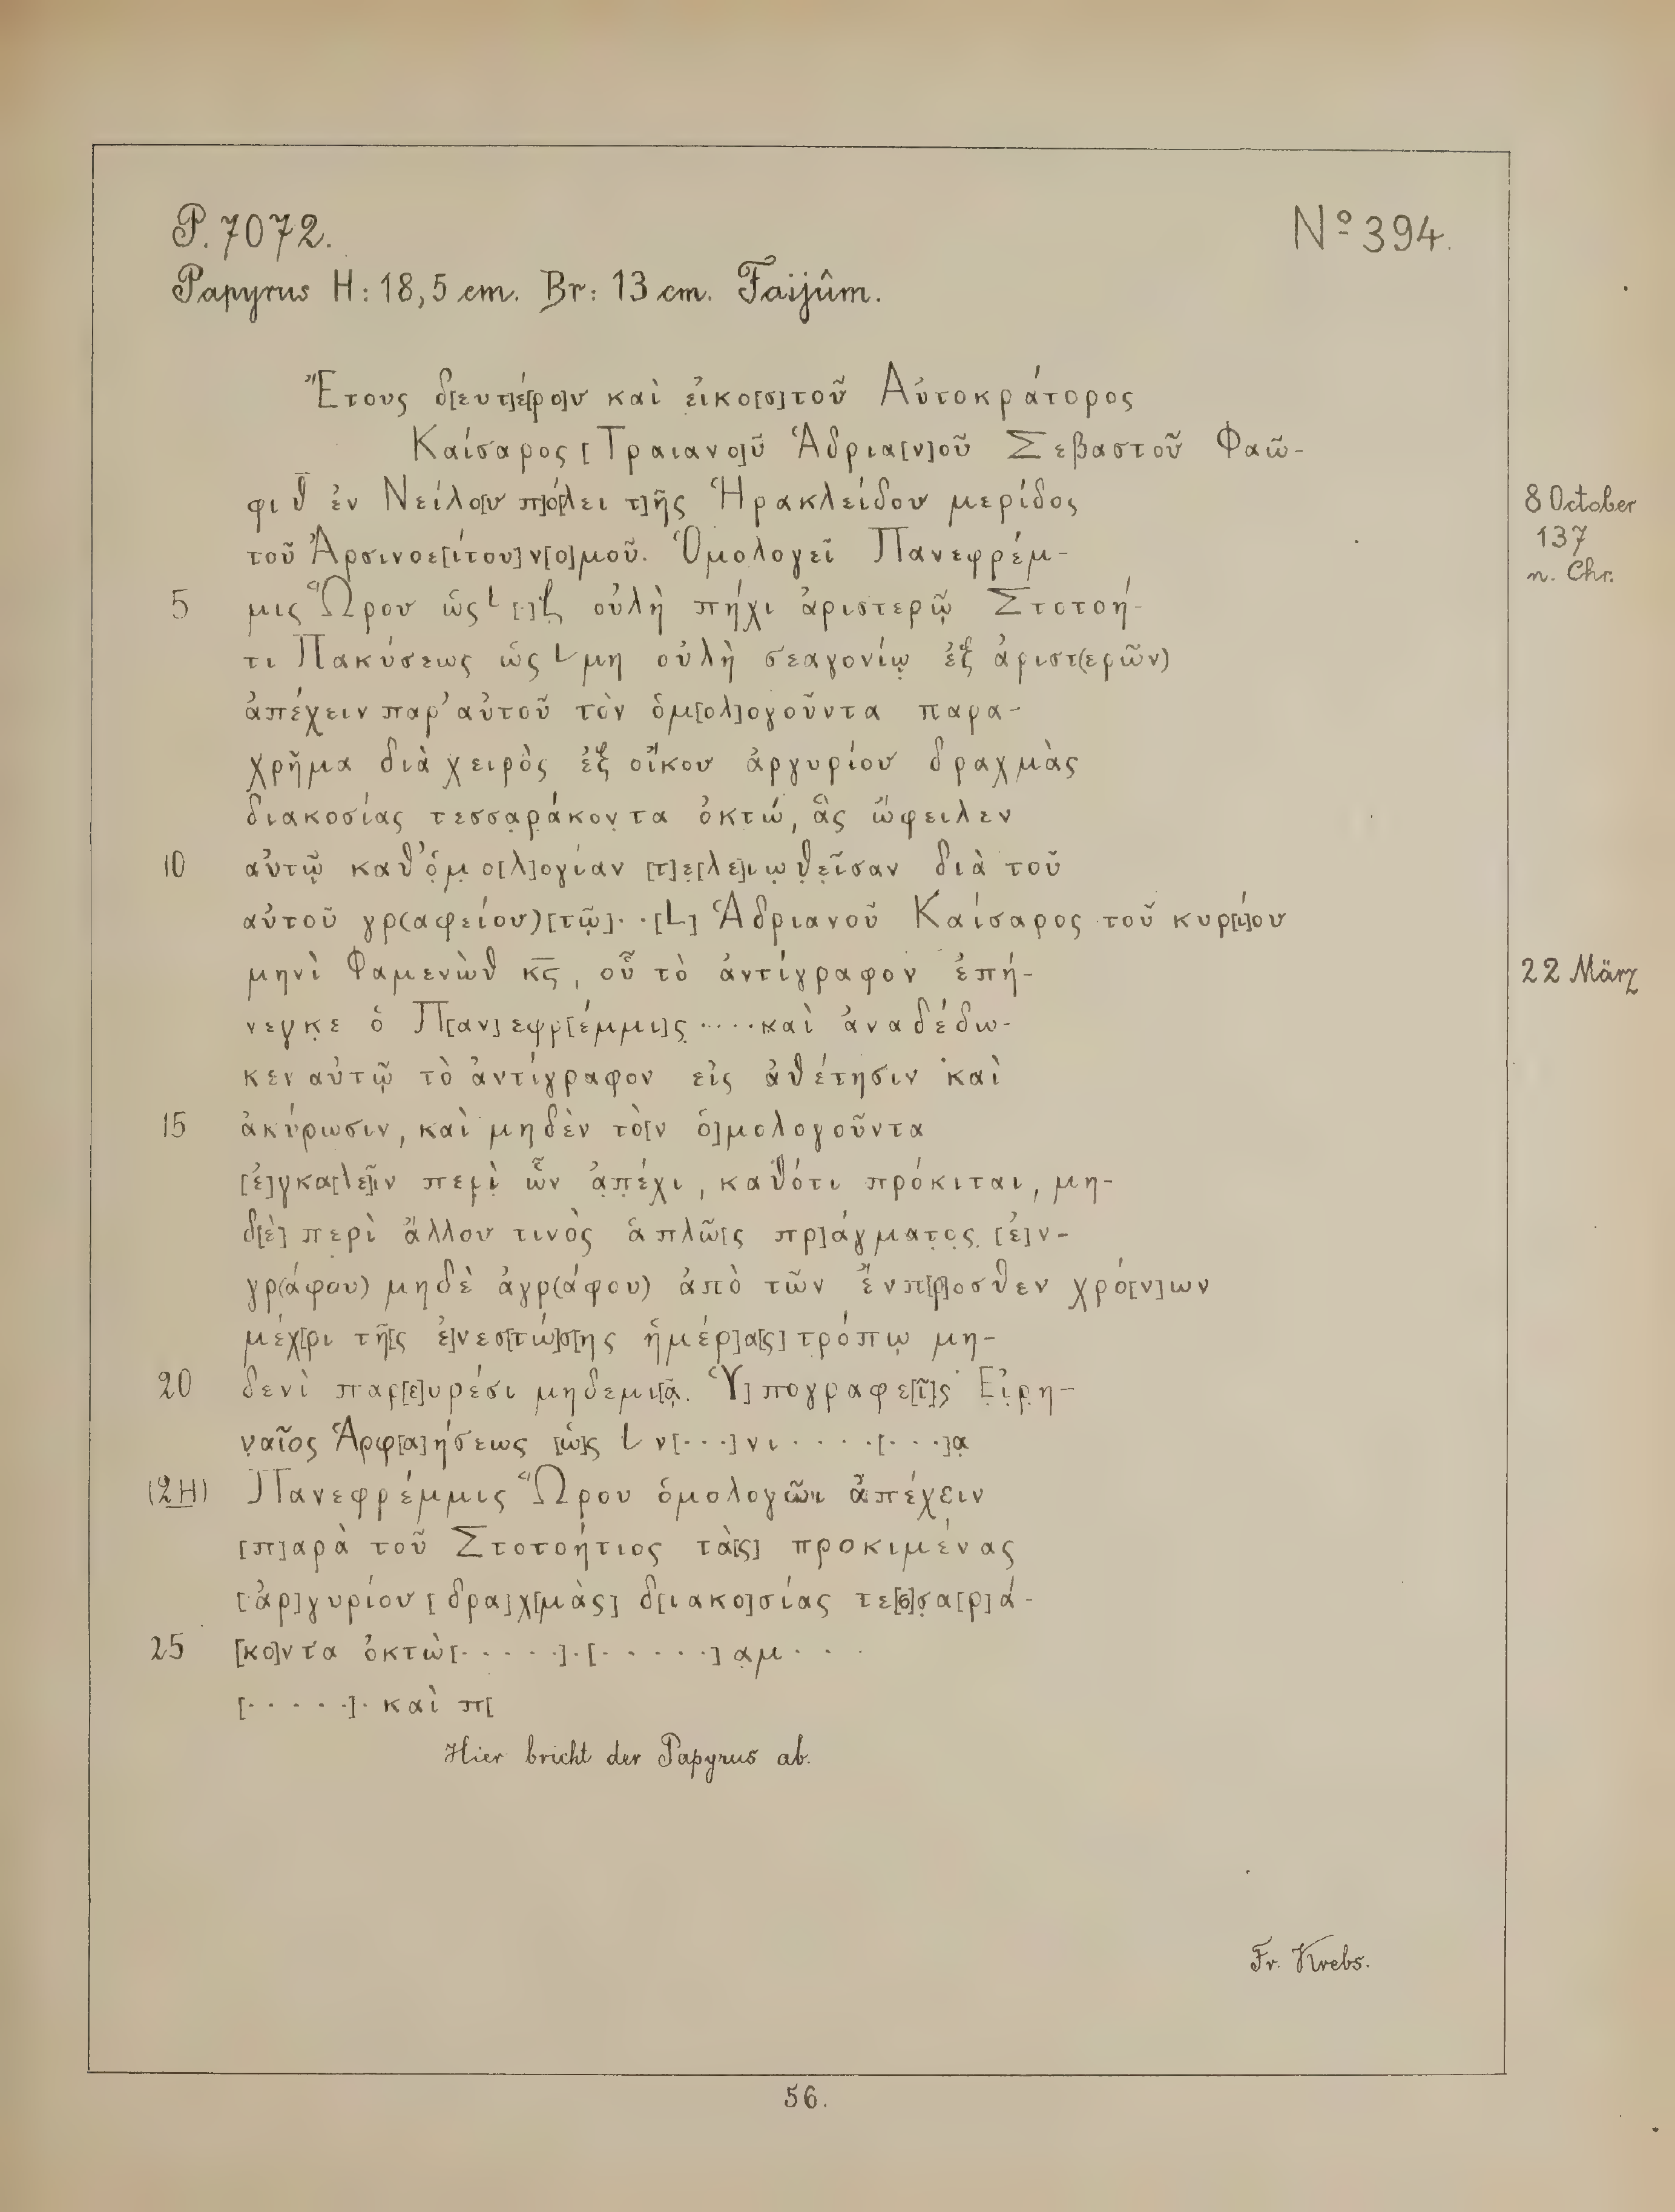 P. 7072.
Nº 394.
Papyrus H: 18,5 cm. Br: 13 cm. Faijûm.
Ἔτους δ[ευτ]έ[ρο]υ καὶ εἰκο[σ]τοῦ Αὐτοκράτορος
Καίσαρος [Τραιανο]ῦ Ἁδρια[ν]οῦ Σεβαστοῦ Φαῶ-
φι θ̅ ἐν Νείλο[υ π]ό[λει τ]ῆς Ἡρακλείδου μερίδος
8 October
137
n. Chr.
τοῦ Ἀρσινοε[ίτου] ν[ο]μοῦ. Ὁμολογεῖ Πανεφρέμ-
5 μις Ὥρου ὡς L [.]ζ οὐλὴ πήχι ἀριστερῷ Στοτοή-
τι Πακύσεως ὡς L μη οὐλὴ σεαγονίῳ ἐξ ἀριστ(ερῶν)
ἀπέχειν παρ' αὐτοῦ τὸν ὁμ[ολ]ογοῦντα παρα-
χρῆμα διὰ χειρὸς ἐξ οἴκου ἀργυρίου δραχμὰς
διακοσίας τεσσα̣ρ̣άκον̣τα ὀκτώ, ἃς ὤφειλεν
10 αὐτῷ καθ' ὁ̣μ̣ο[λ]ογίαν [τ]ε̣[λε]ιω̣θ̣ε̣ῖσαν διὰ τοῦ
αὐτοῦ γρ(αφείου) [τῷ]. . [L] Ἁδριανοῦ Καίσαρος τοῦ κυρ[ί]ου
μηνὶ Φαμενὼθ κ̅ς̅, οὗ τὸ ἀντίγραφον ἐπή-
22 März
νεγκ̣ε ὁ Π[αν]εφρ[έμμι]ς̣ ..... καὶ ἀναδέδω-
κεν αὐτῷ τὸ ἀντίγραφον εἰς ἀθέτησιν καὶ
15 ἀκύρωσιν, καὶ μηδὲν τὸ[ν ὁ]μολογοῦντα
[ἐ]γκα[λε]ῖν περὶ̣ ὧν ἀ̣π̣έχι, καθότι πρόκιται, μη-
δ[ὲ] περὶ ἄλλου τινὸς ἁπλῶ[ς πρ]άγματο̣ς̣ [ἐ]ν-
γρ(άφου) μηδὲ ἀγρ(άφου) ἀπὸ τῶν ἔνπ[ρ]οσθεν χρό[ν]ων
μέχ[ρι τῆ[ς ἐ]νεσ[τώ]σ[ης ἡμέρ]α[ς] τρόπῳ μη-
20 δενὶ παρ[ε]υρέσι μηδεμι[ᾷ. Ὑ]πογραφε[ῖ]ς Ε̣ἰ̣ρ̣η-
ν̣αῖος Ἁρφ[α]ήσεως [ὡ]ς L ν[...]νι . . . . .[. . .]α̣
(2H) Πανεφρέμμις Ὥρου ὁμολογῶι ἀπέχειν
[π]αρὰ τοῦ Στοτοήτιος τὰ[ς] προκιμένας
[ἀρ]γυρίου [δρα]χ[μὰς] δ[ιακο]σίας τε[σ]σ̣α[ρ]ά-
25 [κο]ντα ὀκτὼ[. . . . . .].[. . . . . .] α̣μ . . .
[. . . . . .]. καὶ π[
Hier bricht der Papyrus ab.
Fr. Krebs.
56.